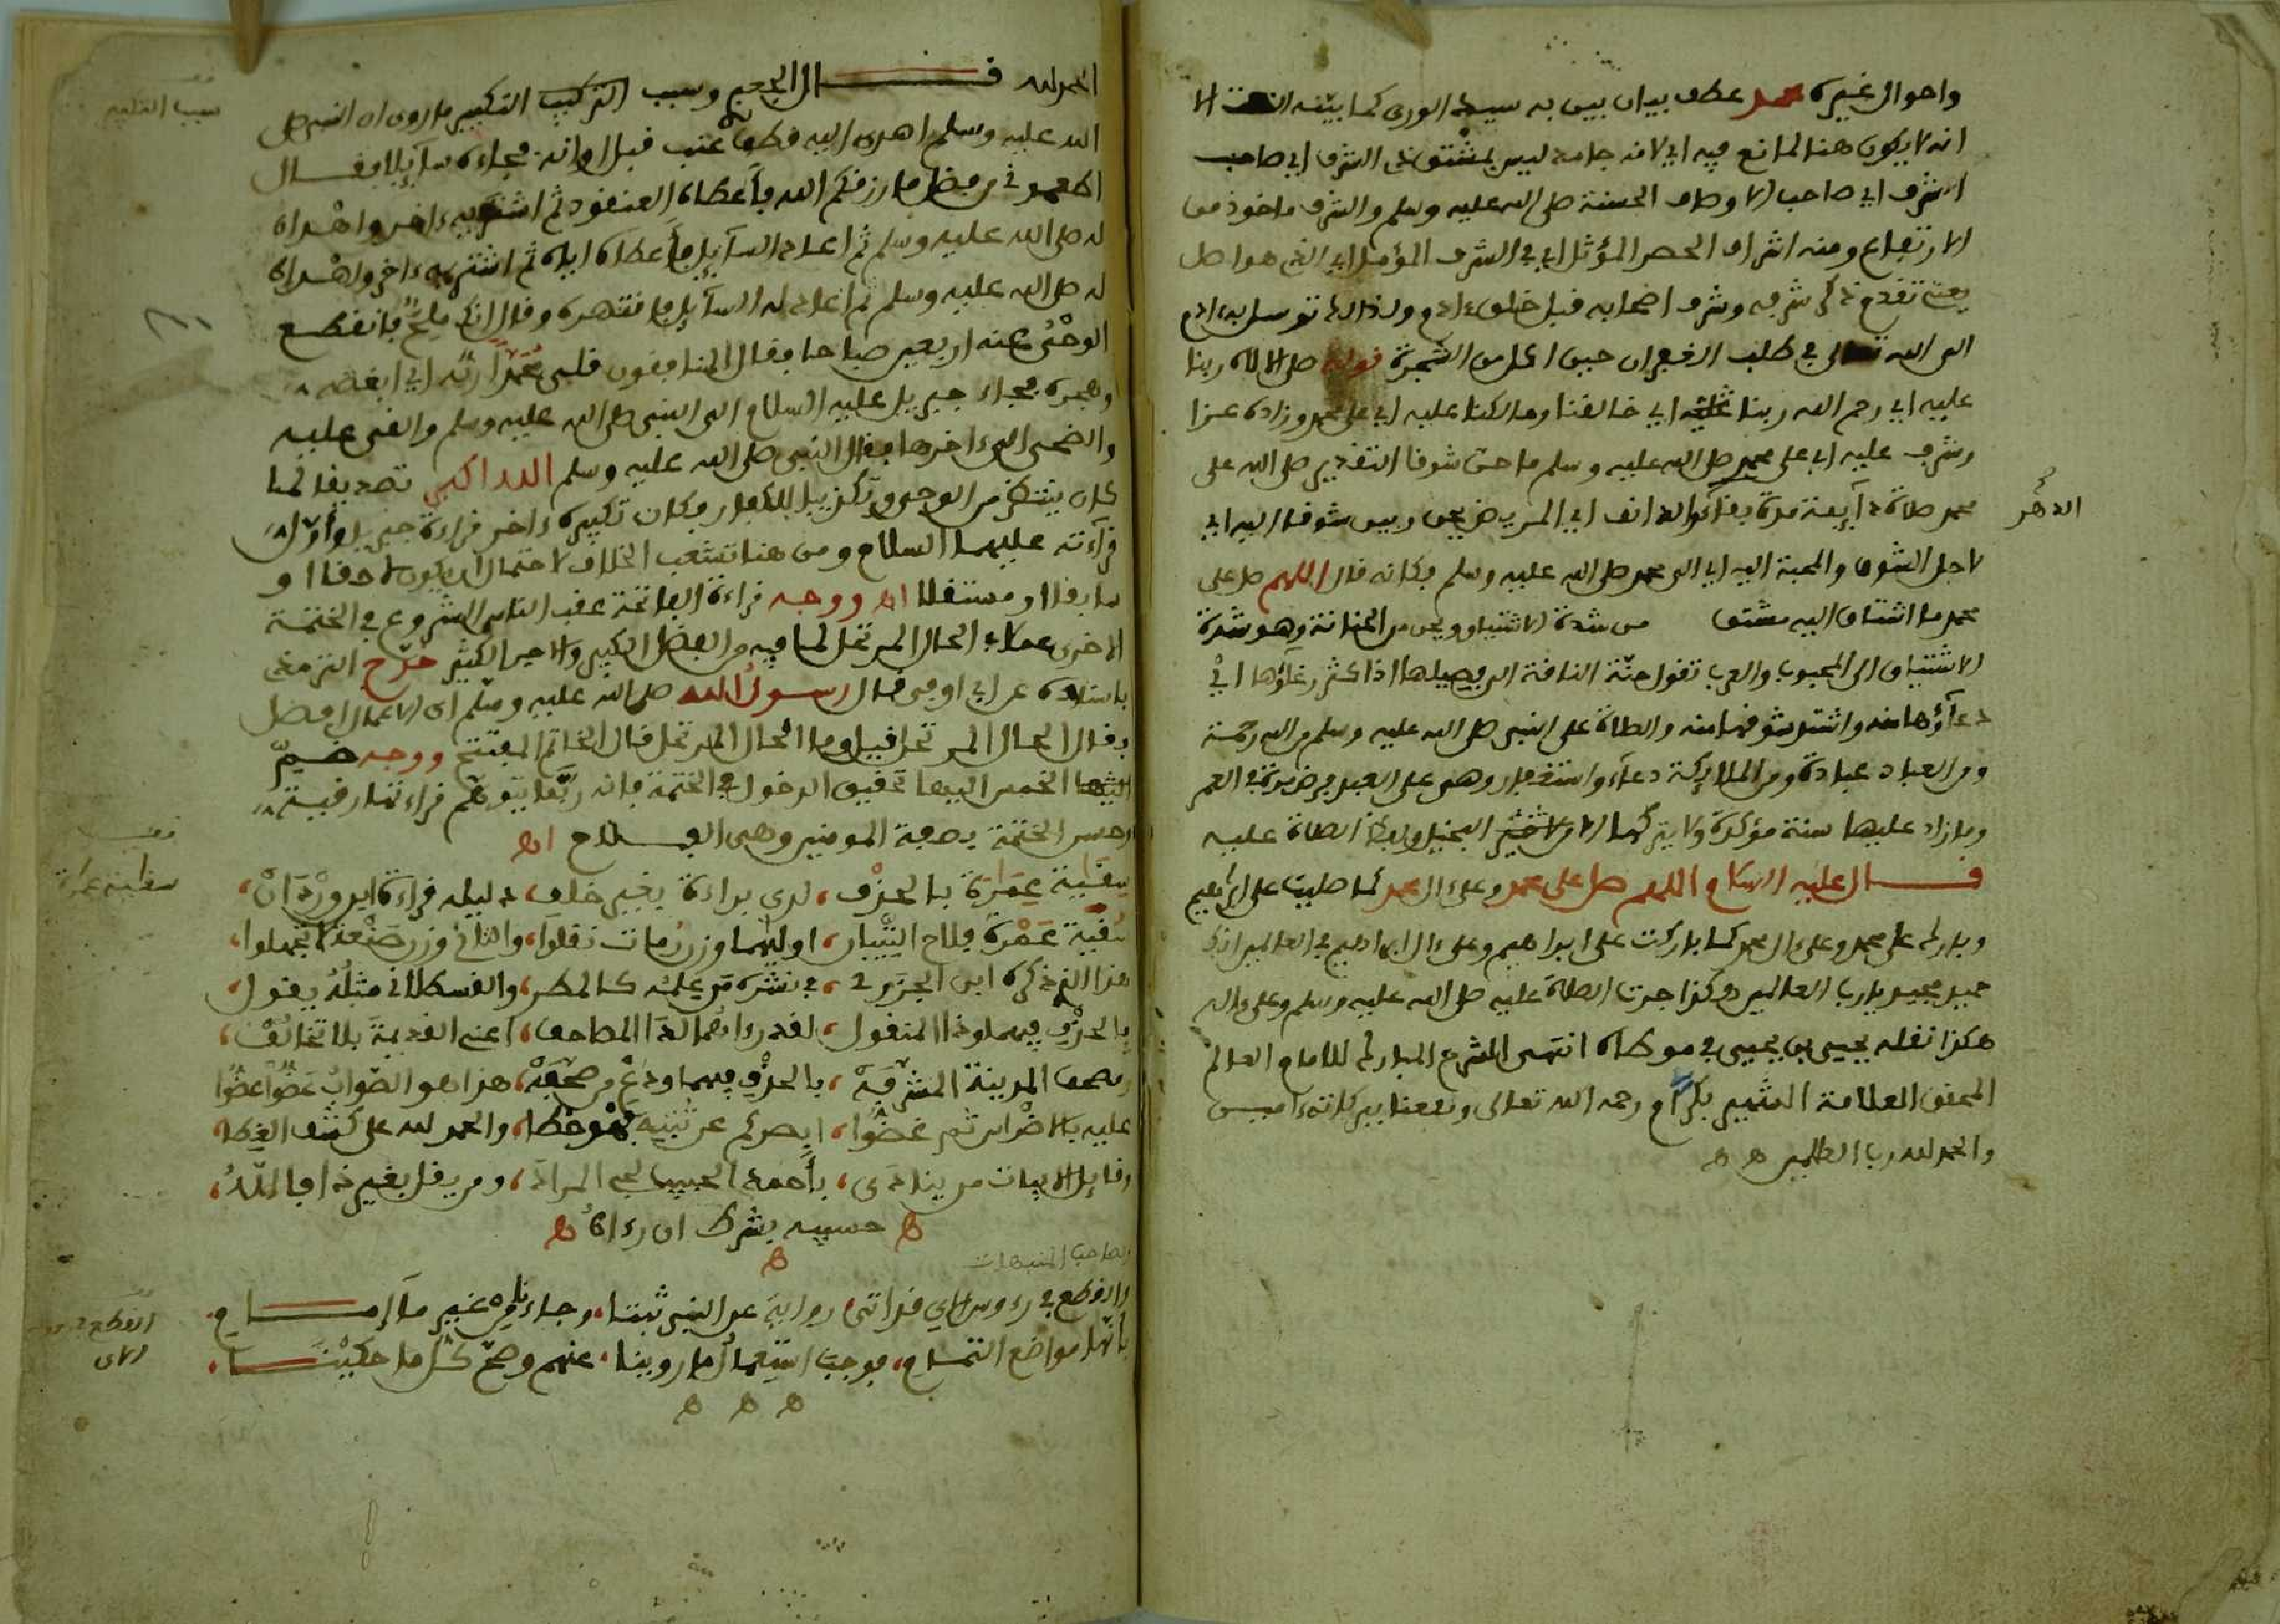 واحوال غيره محمد عطف بيان بين به سيد الورى كما بينه
انه لا يكون هنا لمانع فيه اي لانه جامد ليس بمشتق ذي الشرف اي صاحب
الشرف اي صاحب الاوصاف الحسنة صلى الله عليه وسلم والشرف ماخوذ من
الارتفاع ومنه اشراف الحصر المؤثل اي في الشرف المؤصل اي الذي هو اصل
يعني تقدم ذكر شرفه وشرف اصحابه قبل خلق ءادم ولذالك توسل به ءادم
الى الله تعالى في طلب الغفران حين اكل من الشجرة قوله صلى الاله ربنا
عليه اي رحم الله ربنا اي خالقنا ومالكنا عليه اي على محمد وزاده عزا
وشرف عليه اي على محمد صلى الله عليه وسلم ما حن شوقا التقدير صلى الله على
محمد صلاة دآيمة مدة بقآء الدنف اي المريض يحن دهر شوقا اليه اي
الدهر
لاجل الشوق والمحبة اليه اي الى محمد صلى الله عليه وسلم فكانه قال اللهم صل على
محمد ما اشتاق اليه مشتق من شدة الاشتياق ويحن من الحنانة وهو شدة
الاشتياق الى المحبوب والعرب تقول حنة الناقة الى فصيلها اذا كثر رغآؤها اي
دعآؤها منه واشتد شوقها منه والصلاة على النبي صلى الله عليه وسلم من الله رحمة
ومن العباد عبادة ومن الملايكة دعآء واستغفار وهي على العبد فرض مرة في العمر
وما زاد عليها سنة مؤكدة ولا يتركها الا من لا خير البخيل ولفظ الصلاة عليه
قال عليه السلام اللهم صل على محمد وعلى ءال محمد كما صليت على ابراهيم
وبارك على محمد وعلى ءال محمد كما باركت على ابراهيم وعلى ءال ابراهيم في العالمين انك
حميد مجيد يا رب العالمين وكذا جرت الصلاة عليه صلى الله عليه وسلم وعلى ءاله
هكذا نقله يحيى بن يحيى في موطاه انتهى الشرع المبارك للامام العالم
المحقق العلامة الشهير بكرام رحمه الله تعالى ونفعنا ببركاته ءامين
والحمد لله رب العالمين ه ه
الحمد لله قال الجعبري وسبب التكبير ما روى ان النبي صلى
سبب التكبير
الله عليه وسلم اهدى اليه قطف عنب قبل اوانه فجاءه سآيل فقال
اطعموني من فضل ما رزقكم الله فأعطاه العنقود ثم اشتريه ءاخر واهداه
له صلى الله عليه وسلم ثم اعاد السآيل فأعطاه اياه ثم اشتريه ءاخر واهداه
له صلى الله عليه وسلم ثم اعاد له السآيل فانتهره وقال انك ملح فانقطع
الوحي عنه اربعين صباحا فقال المنافقون قلى محمدا ربه اي ابغضه
وهجره فجاء جبريل عليه السلام الى النبي صلى الله عليه وسلم والقى عليه
والضحى الى ءاخرها فقال النبي صلى الله عليه وسلم الله اكبر تصديقا لما
كان ينتظر من الوحي وتكذيبا للكفار وكان تكبيره ءاخر قراءة جبريل وأول
قرآءته عليهما السلام ومن هنا تشعب الخلاف لاحتمال ان يكون لاحقا او
سابقا او مستقلا اه ووجه قراءة الفاتحة عقب الناس الشروع في الختمة
الاخرى عملا بالحال المرتحل لما فيه من الفضل الكبير والاجر الكثير خرج الترمذي
باسناده عن ابي اوفى قال رسول الله صلى الله عليه وسلم اي الاعمال افضل
فقال الحال المرتحل قيل وما الحال المرتحل قال الخاتم المفتتح ووجه ضم
الخمس اليها تحقيق الدخول في الختمة فانه ربما يتوهم قراءتها رقية
وخمس الختمة بصفة المومنين وهي الفلاح اه
سقاية عمارة بالحذف، لدى براءة بغير خلف، دليله قراءة ابن وردان،
سقاية عمارة
سقية عمرة فلاح التبيان، اوليهما وزن رمات نقلوا، والثاني وزن صنعة لا تجهلوا،
هذا الذي ذكره ابن الجزري، في نشره من علمه كالمطر، والقسطلاني مثله يقول،
بالحذف فيهما وذا المنقول، لقد رءاهما لدا المصاحف، اعني القديمة بلا تخالف،
ومصحف المدينة المشرفة، بالحذف فيهما ودع من صحفه، هذا هو الصواب عضوا عضوا
عليه بالاضراس ثم غضوا، ابصركم عن ثبته فهو خطا، والحمد لله على كشف الغطا،
وقايل الابيات من ينادى، بأحمد الحبيب لحي المراد، ومن يقل بغير ذا فالله،
ه حسيبه بشرط ان رءاه ه
ه
لصاحب المنبهات
والقطع في رءوس الاي قد اتى، رواية عن النبي ثبتا، وجاء نا من غير ما امام،
القطع في رءوس
الاي
بأنها مواضع التمام، فوجب استعمال ما روينا، عنهم وصح كل ما حكينا،
ه ه ه